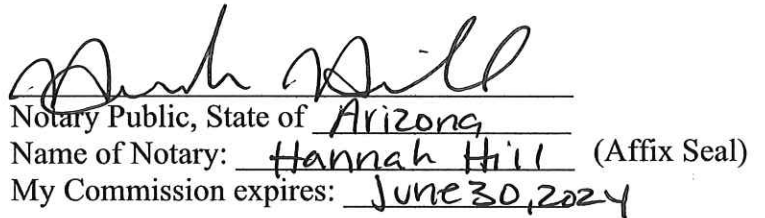 Hannah Hill
Notary Public, State of Arizona
Name of Notary: Hannah Hill (Affix Seal)
My Commission expires: June 30, 2024